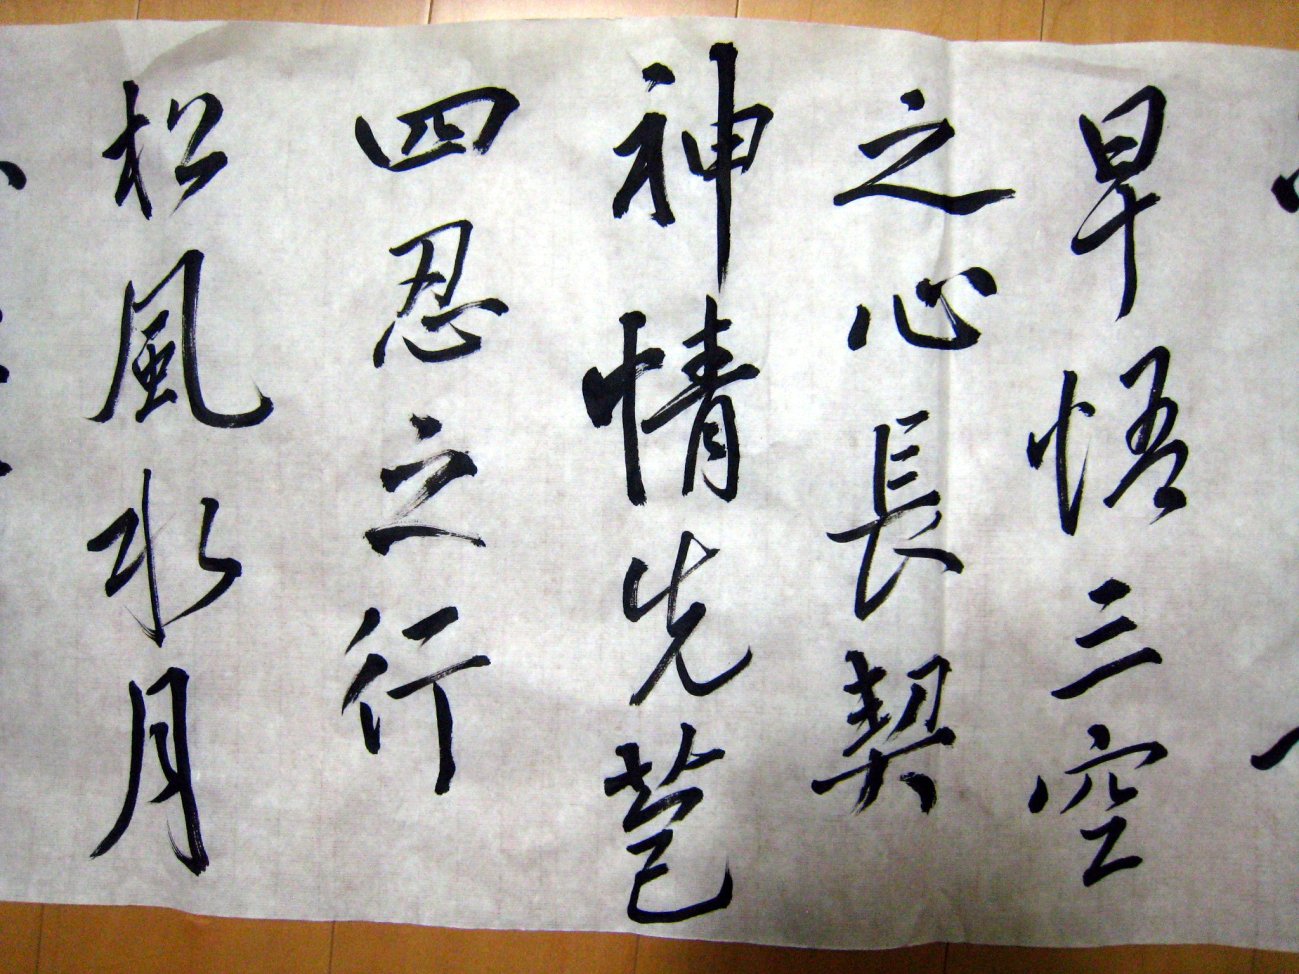 早悟三空
之心長契
神情先苞
四忍之行
松風水月